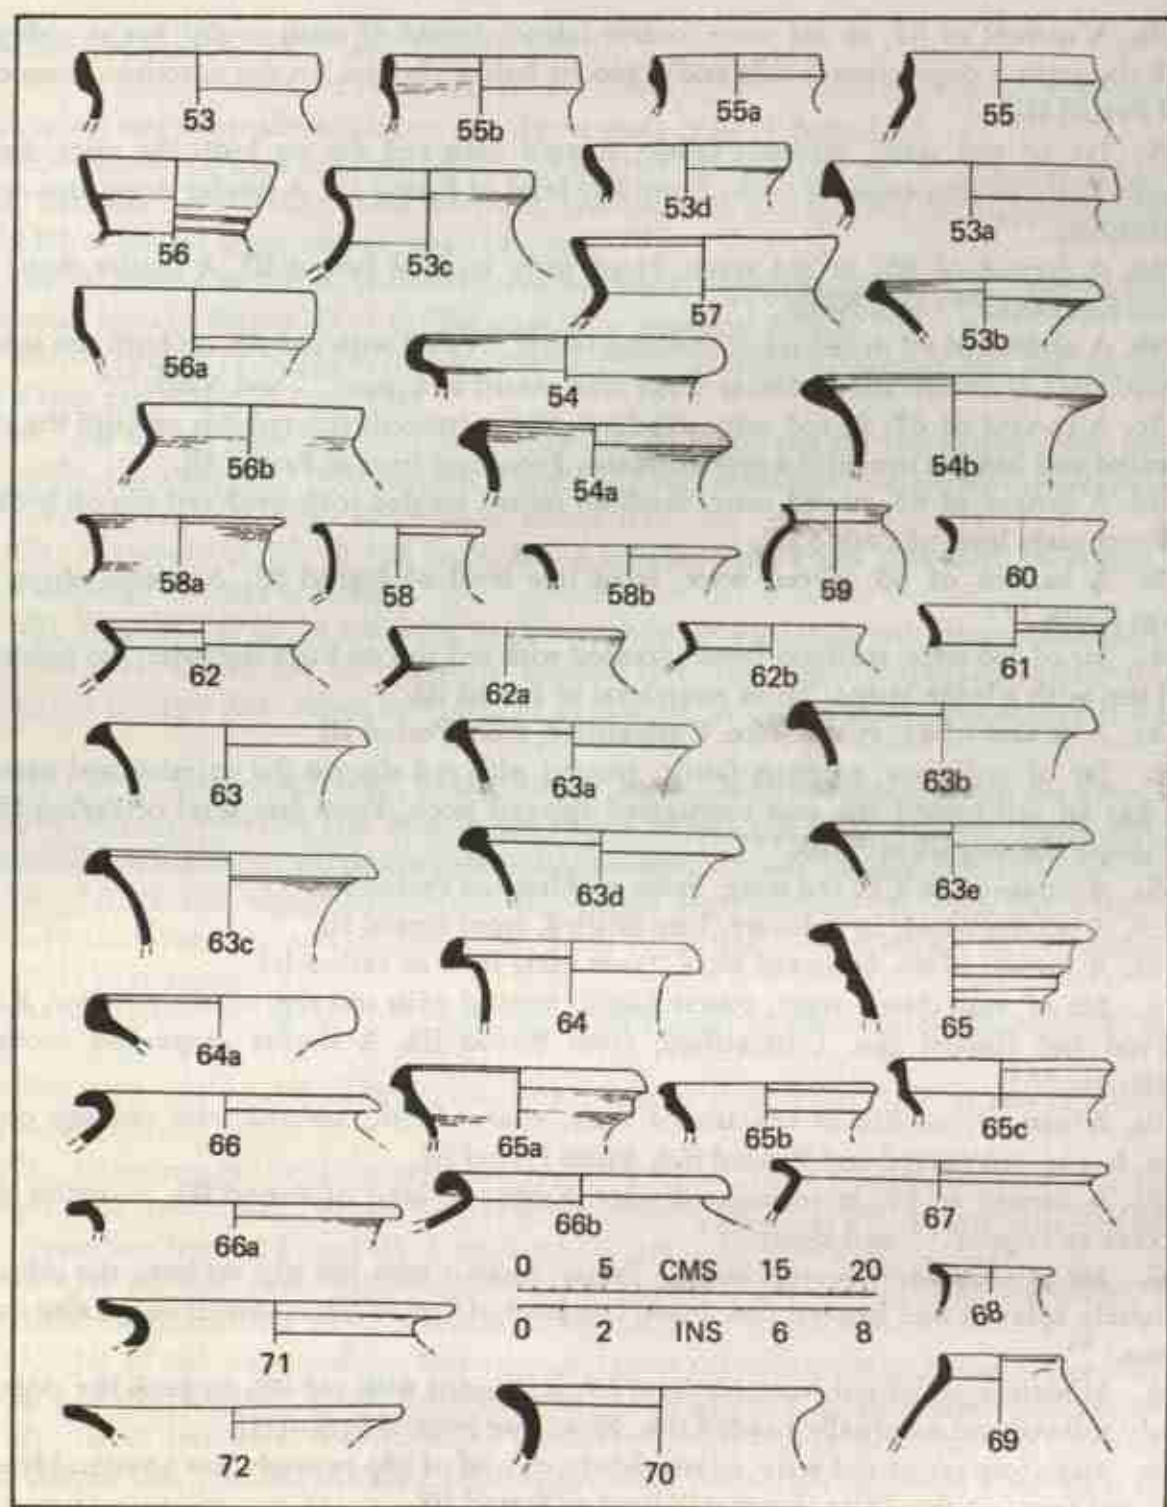 53 55b 55a 55
56 53c 53d 53a
56a 57 53b
54
56b 54a 54b
58a 58 58b 59 60
62 62a 62b 61
63 63a 63b
63c 63d 63e
64a 64 65
66 65a 65b 65c
66a 66b 67
0 5 CMS 15 20
0 2 INS 6 8
68
71
72 70 69